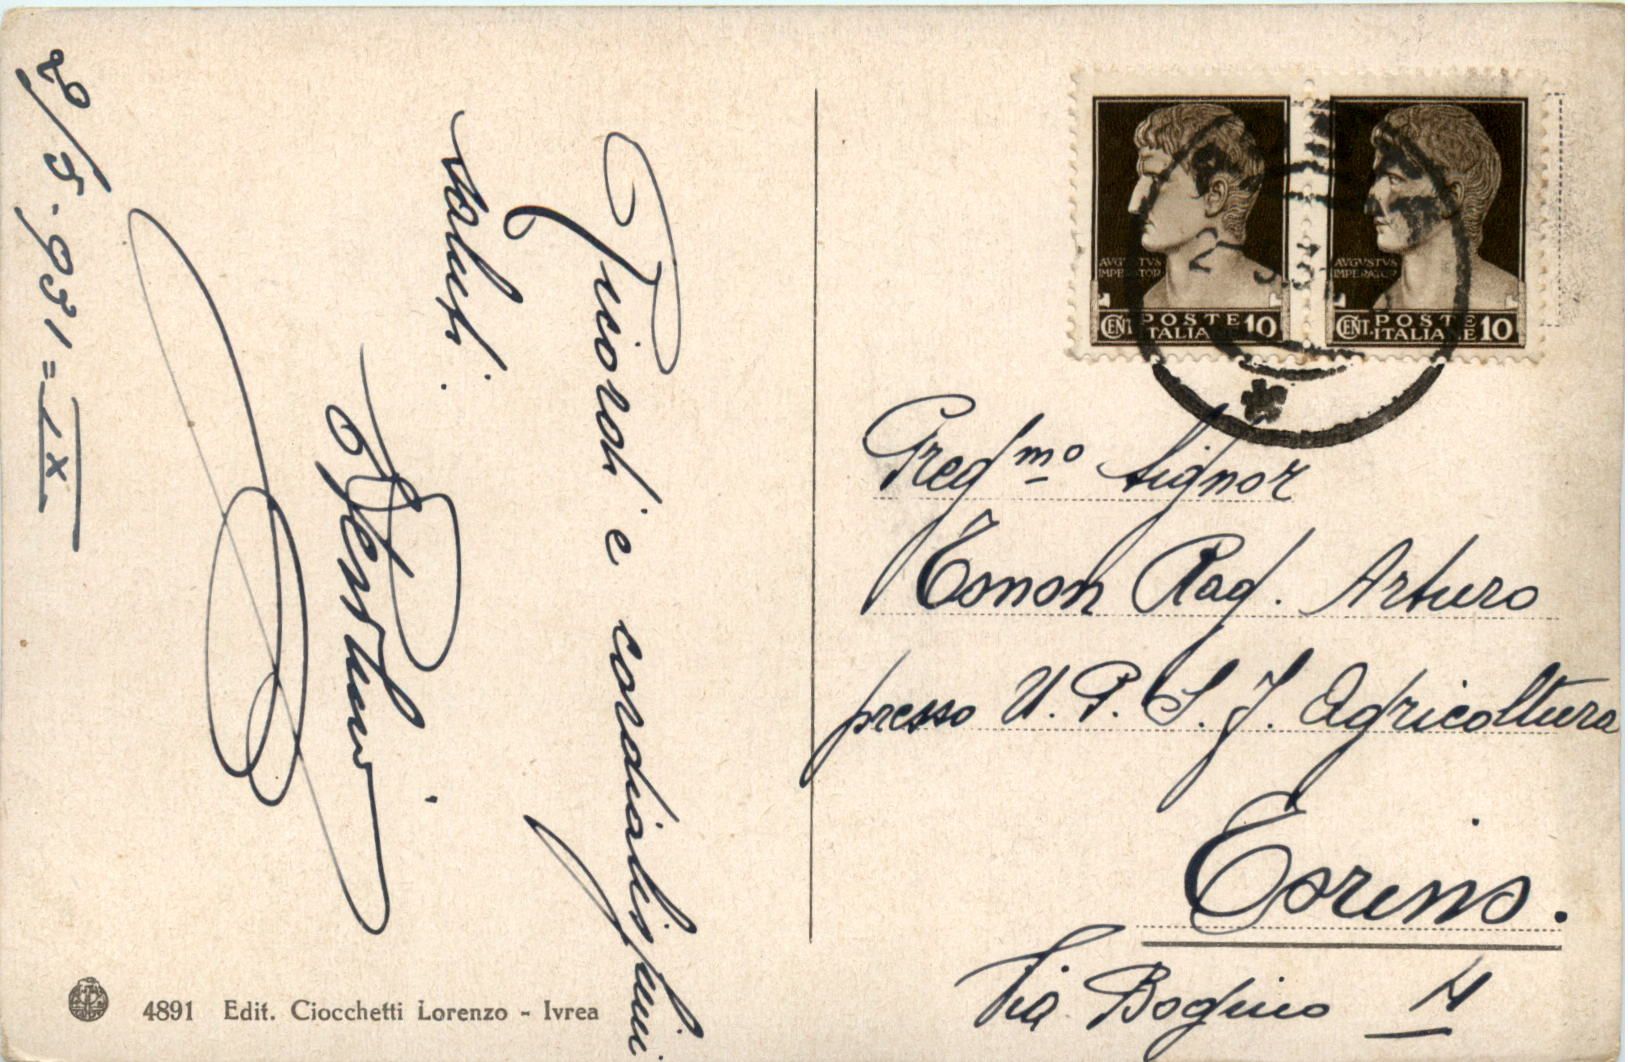 2/5.931=IX
Ricordi e cordialissimi
saluti.
AVGVSTVS
IMPERATOR
CENT. POSTE
ITALIANE 10
AVGVSTVS
IMPERATOR
CENT. POSTE
ITALIANE 10
Preg.mo Signor
Tonon Rag. Arturo
presso U. P. S. F. Agricoltura
Torino.
Via Bogino
4891 Edit. Ciocchetti Lorenzo - Ivrea